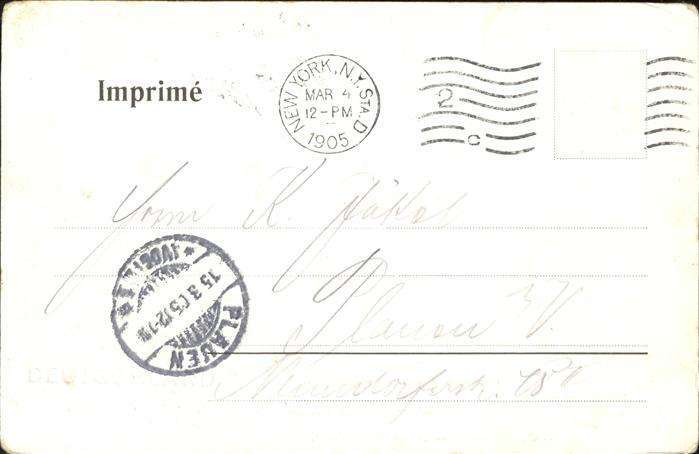 Imprimé
NEW YORK, N.Y. STA. D
MAR 4
12-PM
1905
2
C
Herrn K.
Plauen i/V.
PLAUEN
(VOGTL.)
15 3 05 12-1N
DEUTSCHLAND